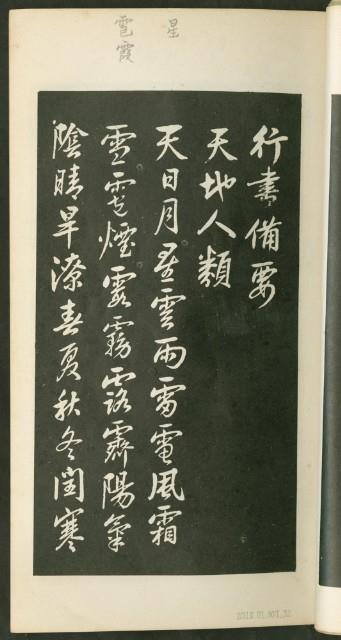 星
雹
霞
行書備要
天地人類
天日月星雲雨雷電風霜
雪雹煙霞霧露霽陽氣
陰晴旱潦春夏秋冬閏寒